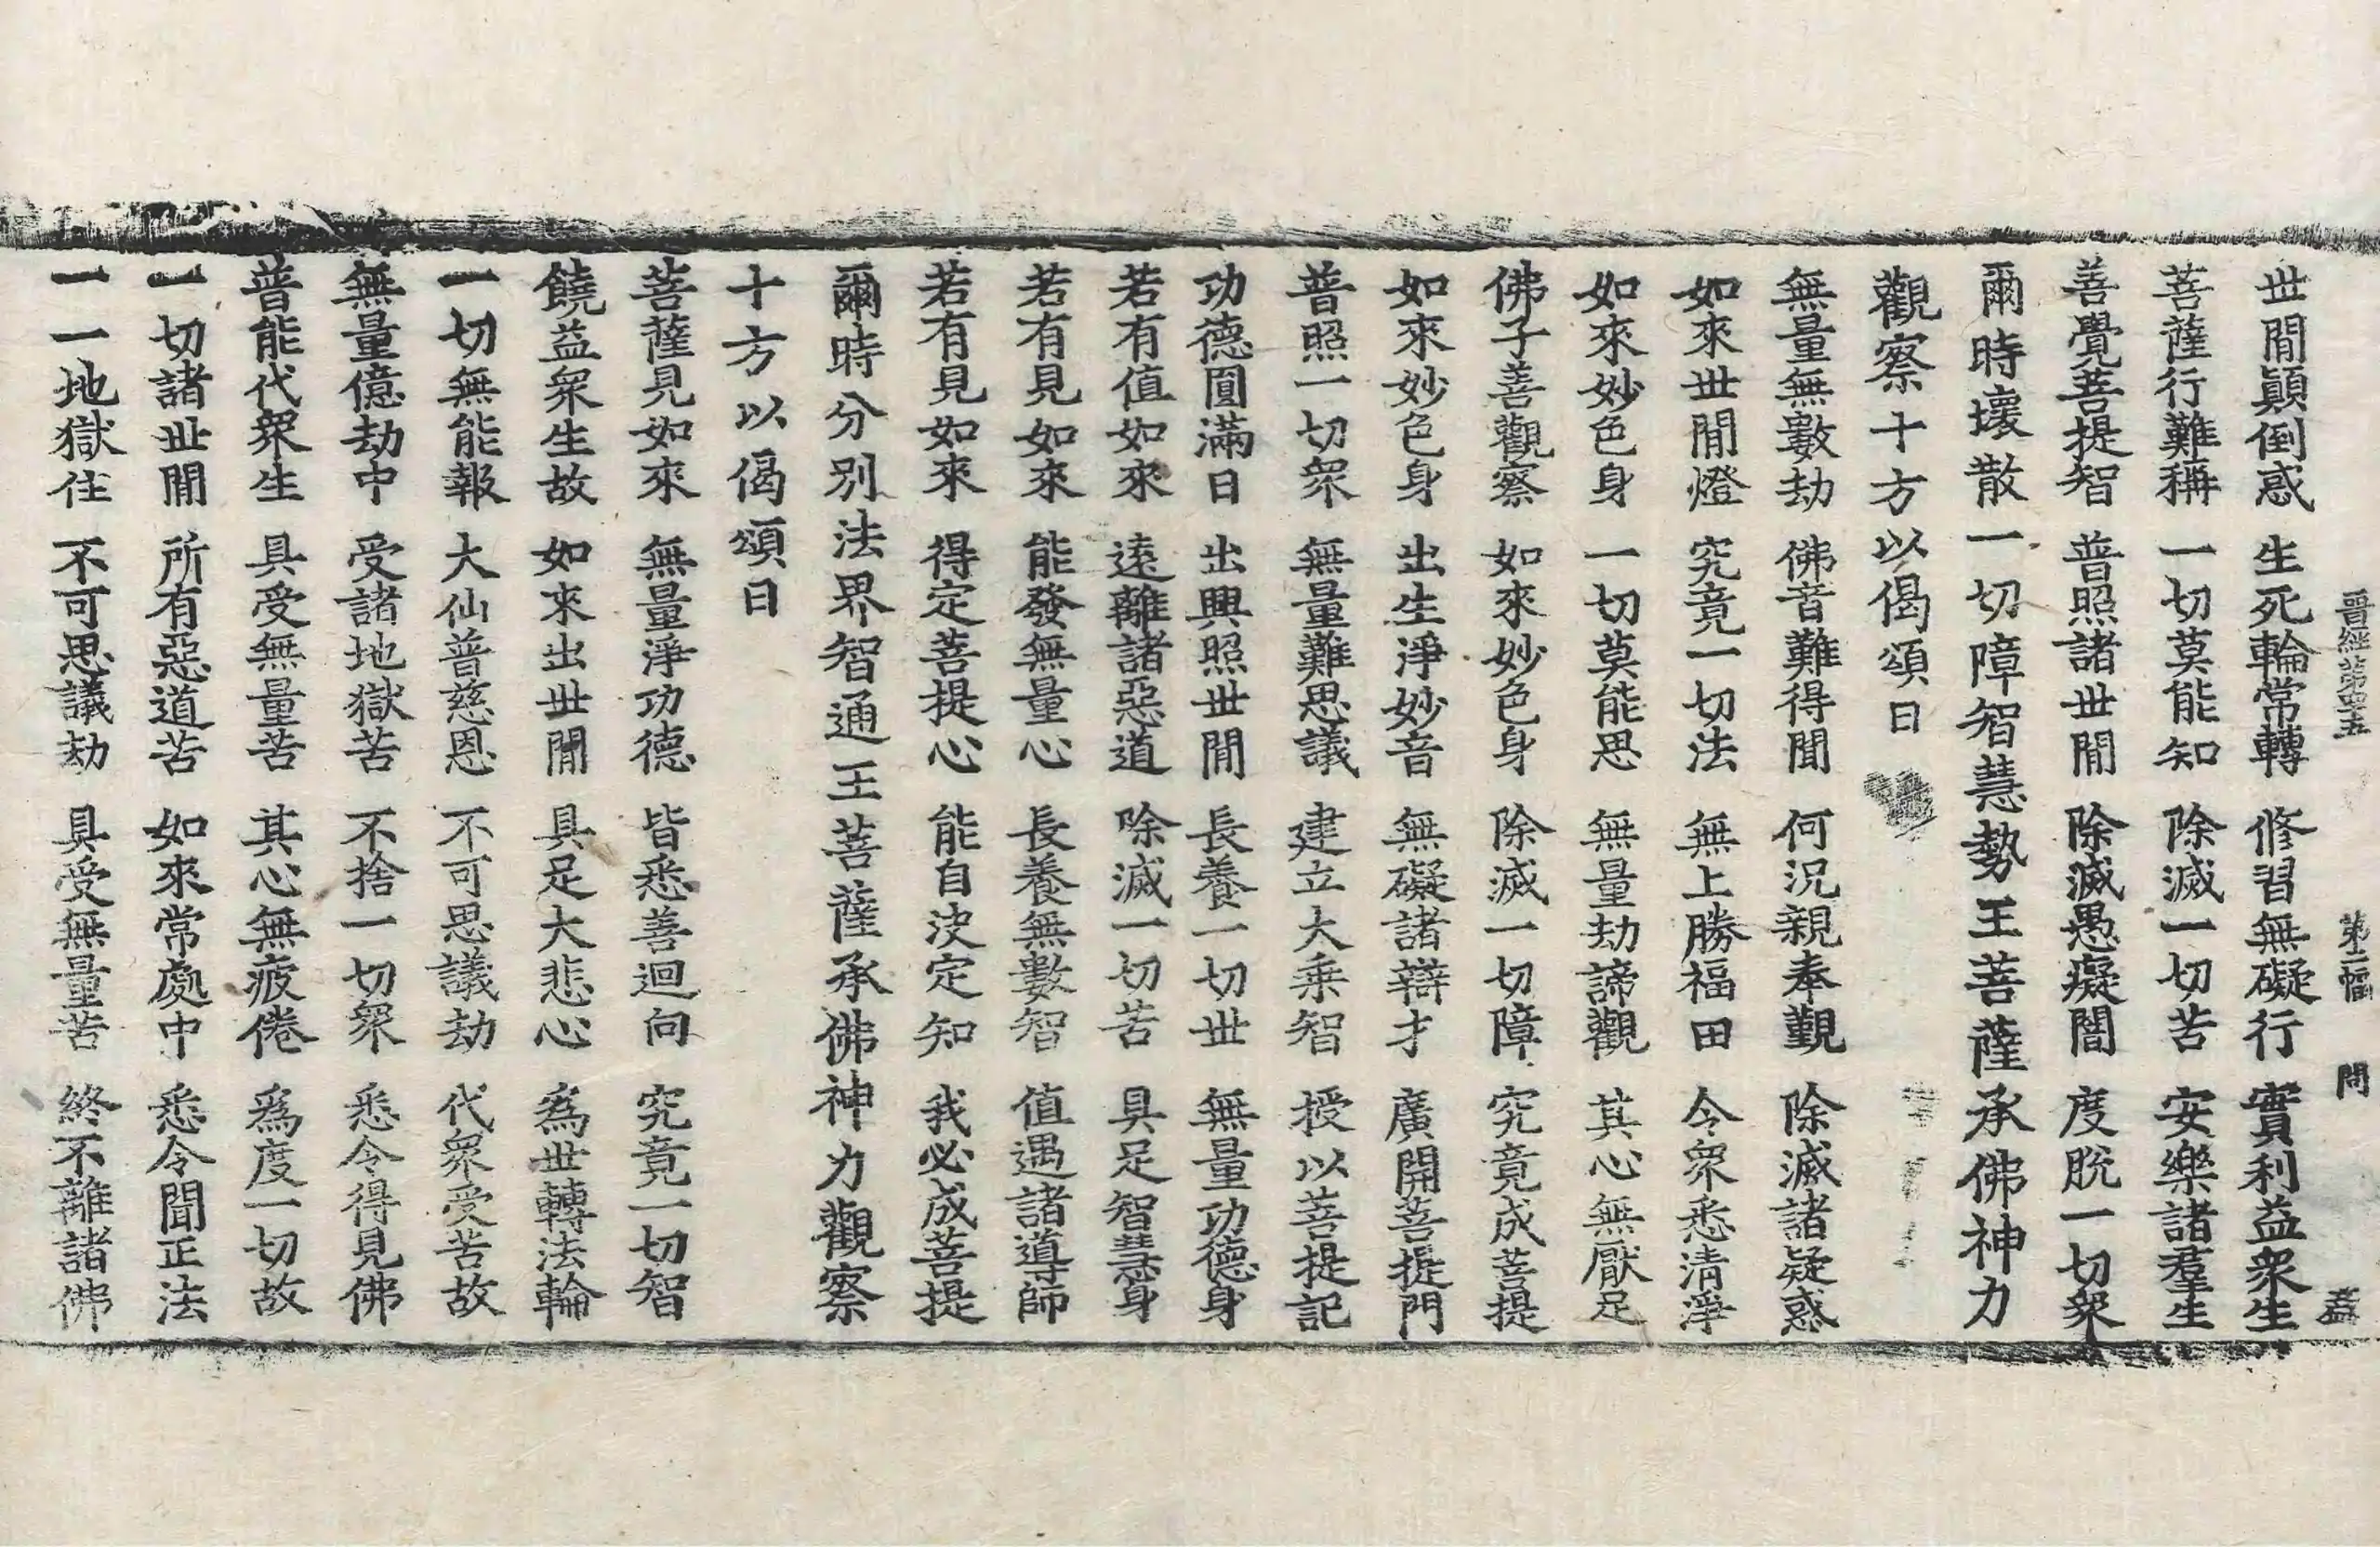 晉經第四五　第十二幅　問　孟
世閒顚倒惑　生死輪常轉　修習無礙行　實利益衆生
菩薩行難稱　一切莫能知　除滅一切苦　安樂諸羣生
善覺菩提智　普照諸世閒　除滅愚癡闇　度脫一切衆
爾時壞散一切障智慧勢王菩薩承佛神力
觀察十方以偈頌曰
無量無數劫　佛音難得聞　何況親奉覲　除滅諸疑惑
如來世閒燈　究竟一切法　無上勝福田　令衆悉清淨
如來妙色身　一切莫能思　無量劫諦觀　其心無厭足
佛子善觀察　如來妙色身　除滅一切障　究竟成菩提
如來妙色身　出生淨妙音　無礙諸辯才　廣開菩提門
普照一切衆　無量難思議　建立大乘智　授以菩提記
功德圓滿日　出興照世閒　長養一切世　無量功德身
若有值如來　遠離諸惡道　除滅一切苦　具足智慧身
若有見如來　能發無量心　長養無數智　值遇諸導師
若有見如來　得定菩提心　能自決定知　我必成菩提
爾時分別法界智通王菩薩承佛神力觀察
十方以偈頌曰
菩薩見如來　無量淨功德　皆悉善迴向　究竟一切智
饒益衆生故　如來出世閒　具足大悲心　爲世轉法輪
一切無能報　大仙普慈恩　不可思議劫　代衆受苦故
無量億劫中　受諸地獄苦　不捨一切衆　悉令得見佛
普能代衆生　具受無量苦　其心無疲倦　爲度一切故
一切諸世閒　所有惡道苦　如來常處中　悉令聞正法
一一地獄住　不可思議劫　具受無量苦　終不離諸佛